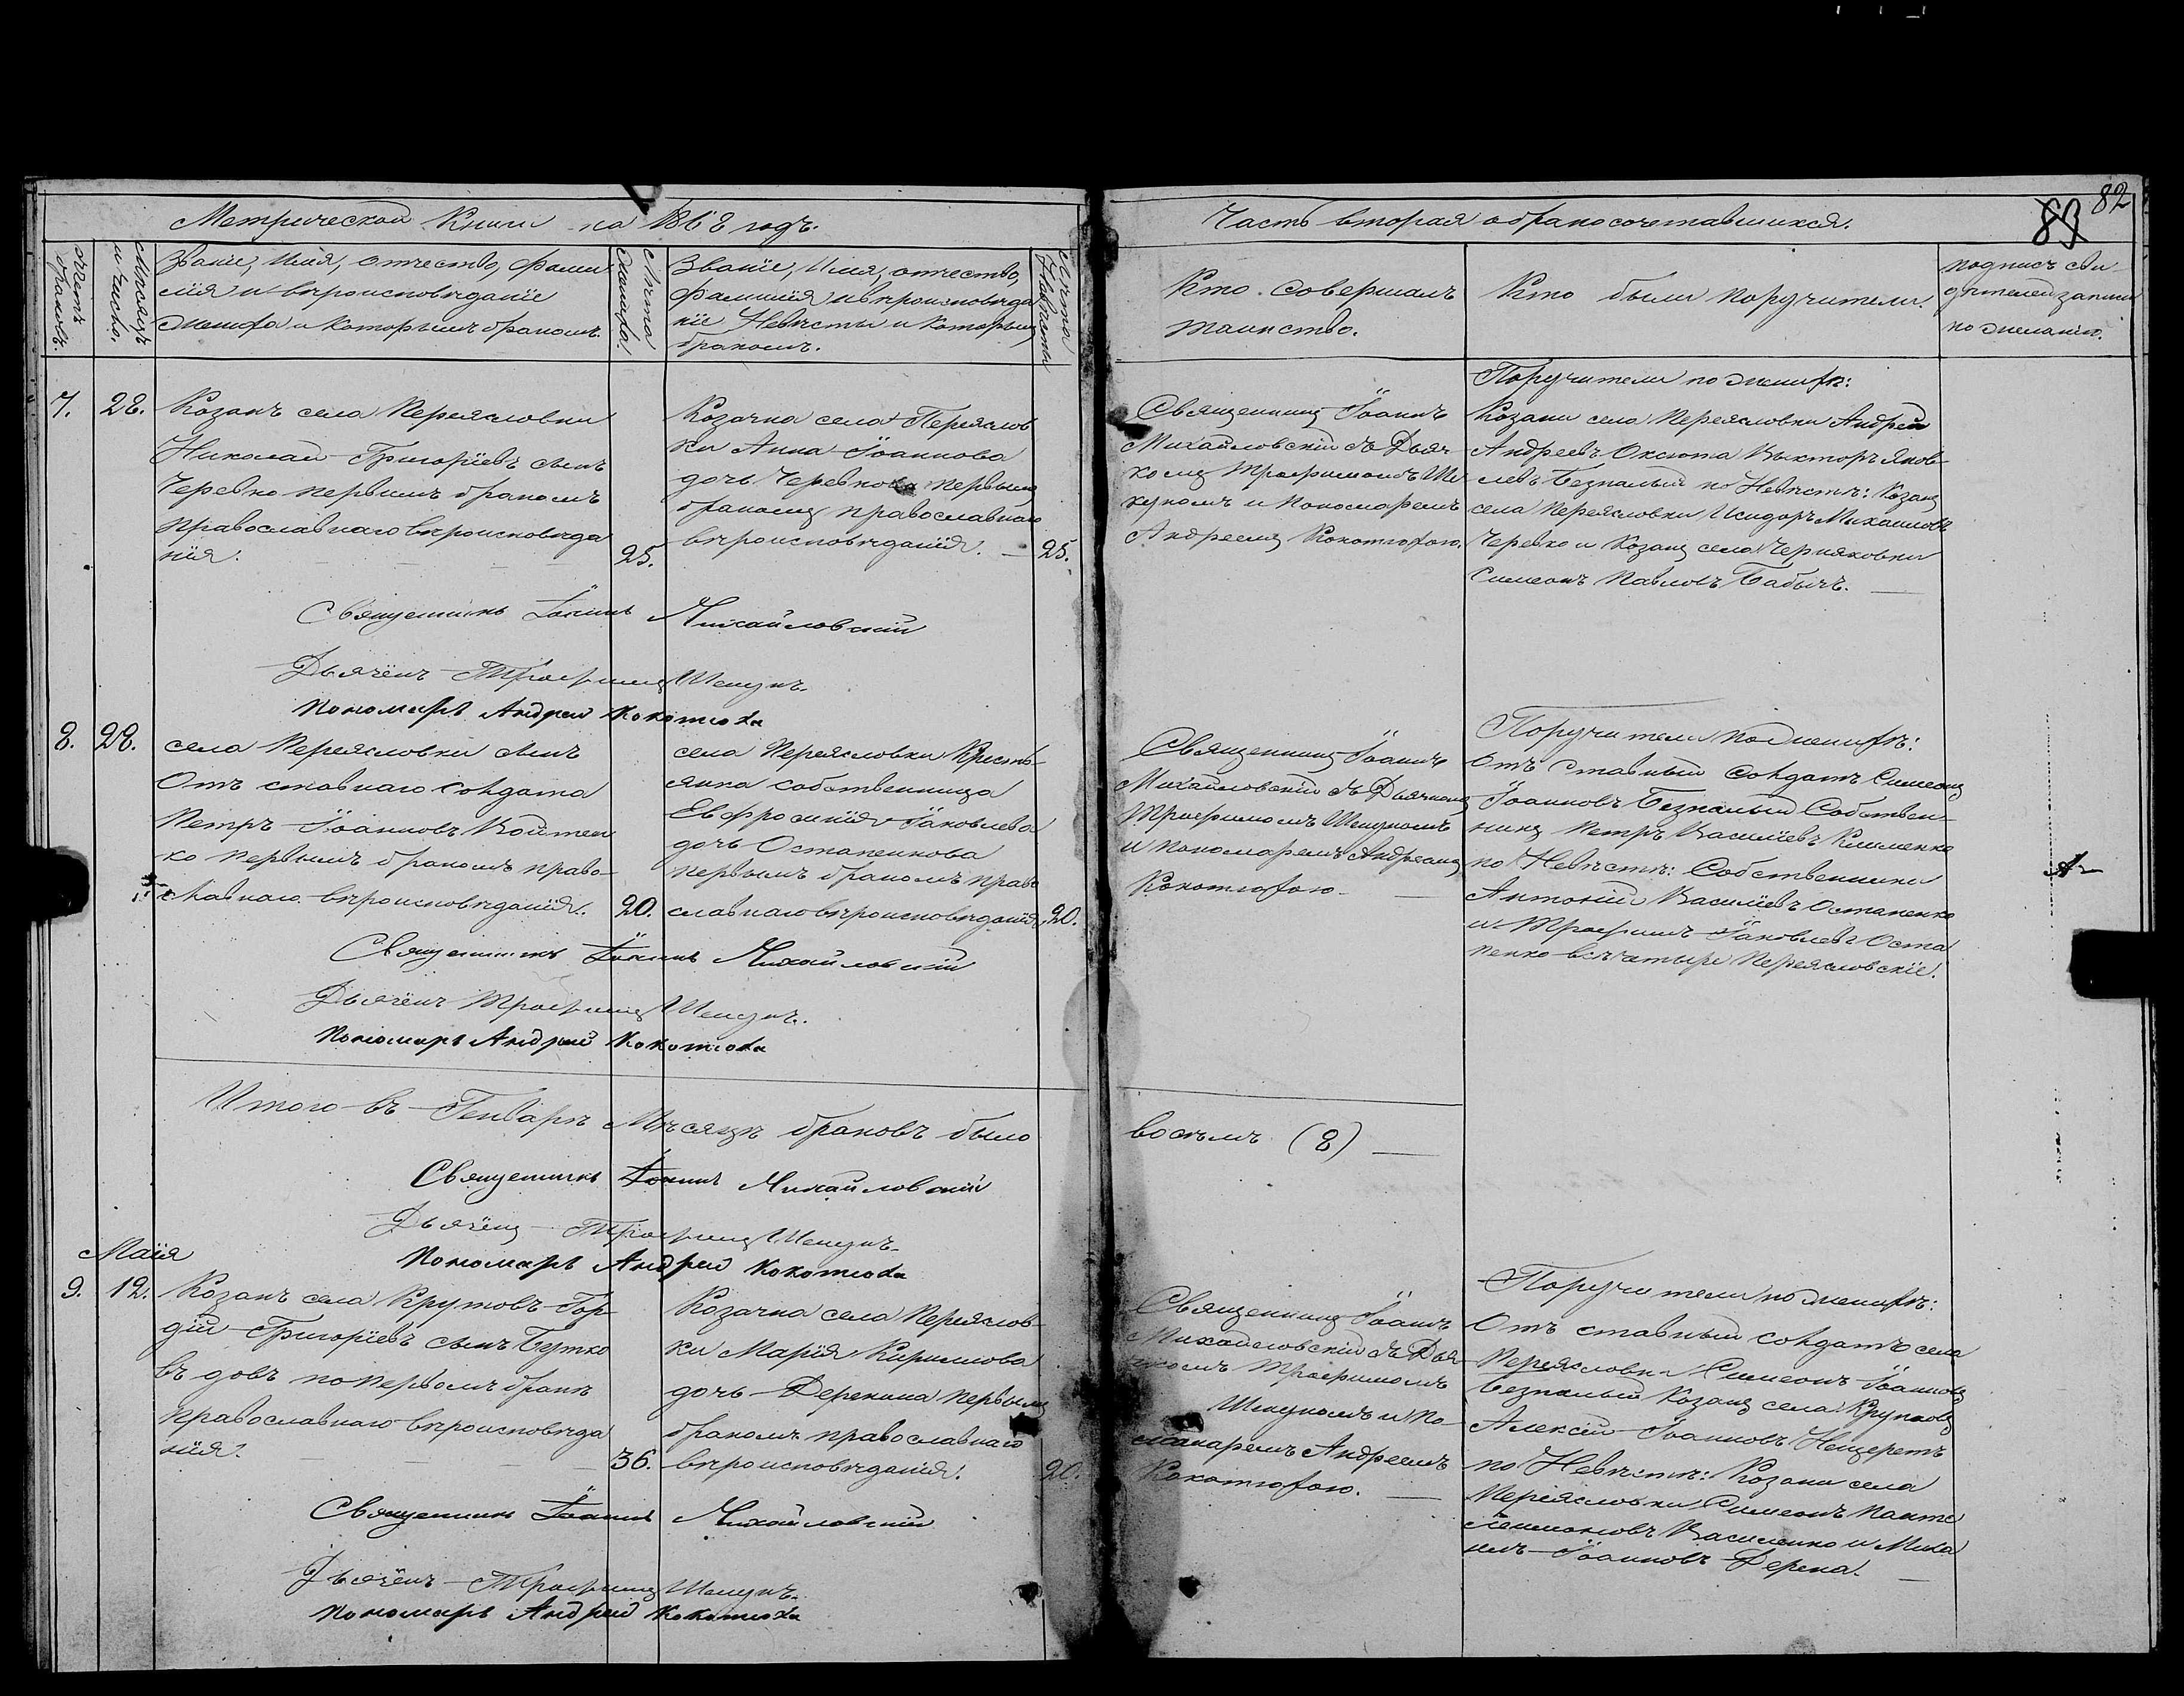 82
83
Метрической Книги на 1868 годъ.
Часть вторая о бракосочетавшихся.
Счетъ браковъ.
Мѣсяцъ и число.
Званіе, Имя, отчество, фами
лія и вѣроисповѣданіе
Жениха и которымъ бракомъ.
Лѣта Жениха.
Званіе, Имя, отчество,
фамилія и вѣроисповѣда
ніе Невѣсты и которымъ
бракомъ.
Лѣта Невѣсты
Кто совершалъ
таинство.
Кто были поручители.
подпись сви
дѣтелей записи
по желанію.
7.
28.
Козакъ села Переясловки
Николай Григоріевъ сынъ
Черевко первымъ бракомъ
православнаго вѣроисповѣда
нія.
25.
Козачка села Переяслов
ки Анна Іоаннова
дочь Черевкова первымъ
бракомъ православнаго
вѣроисповѣданія.
25.
Священникъ Іоаннъ
Михайловскій съ Дьяч
комъ Трофимомъ Ше
куномъ и Пономаремъ
Андреемъ Кокотюхою.
Поручители по женихѣ:
Козаки села Переясловки Андрей
Андреевъ Оксюта Викторъ Яков
левъ Безпалый по Невѣстѣ: Козакъ
села Переясловки Исидоръ Михаиловъ
Черевко и Козакъ села Черняховки
Симеонъ Павловъ Бабычъ.
Священникъ Іоаннъ Михайловскій
Дьячекъ Трофимъ Шекунъ.
Пономарь Андрей Кокотюха
8.
28.
села Переясловки сынъ
Отъ ставнаго солдата
Петръ Іоанновъ Войтен
ко первымъ бракомъ право-
славнаго вѣроисповѣданія.
20.
села Переясловки Кресть-
янка собственница
Евфросинія Іаковлева
дочь Остапенкова
первымъ бракомъ право
славнаго вѣроисповѣданія
20.
Священникъ Іоаннъ
Михайловскій съ Дьячкомъ
Трофимомъ Шекуномъ
и Пономаремъ Андреемъ
Кокотюхою.
Поручители по женихѣ:
Отъ ставный солдатъ Симеонъ
Іоанновъ Безпалый Собствен-
никъ Петръ Василіевъ Клименко
по Невѣстѣ: Собственники
Антоній Василіевъ Остапенко
и Трофимъ Іаковлевъ Оста
пенко всѣ чатыре Переясловскіе.
Священникъ Іоаннъ Михайловскій
Дьячекъ Трофимъ Шекунъ.
Пономарь Андрей Кокотюха
Итого въ Генварѣ Мѣсяцѣ браковъ было
восѣмъ (8)
Священникъ Іоаннъ Михайловскій
Дьячекъ Трофимъ Шекунъ.
Пономарь Андрей Кокотюха
Маія
9.
12.
Козакъ села Крутовъ Гор
дій Григоріевъ сынъ Бутко
въ довъ по первомъ бракѣ
православнаго вѣроисповѣда
нія.
36.
Козачка села Переяслов-
ки Марія Кириллова
дочь Дерекина первымъ
бракомъ православнаго
вѣроисповѣданія.
20.
Священникъ Іоаннъ
Михайловскій съ Дья
чкомъ Трофимомъ
Шекуномъ и По-
намаремъ Андреемъ
Кокотюхою.
Поручители по женихѣ:
Отъ ставный солдатъ села
Переясловки Симеонъ Іоанновъ
Безпалый Козакъ села Круповъ
Алексій Іоанновъ Нещеретъ
по Невѣстѣ: Козаки села
Переясловки Симеонъ Панте
леимоновъ Василенко и Миха
илъ Іоанновъ Дерека.
Священникъ Іоаннъ Михайловскій
Дьячекъ Трофимъ Шекунъ.
Пономарь Андрей Кокотюха